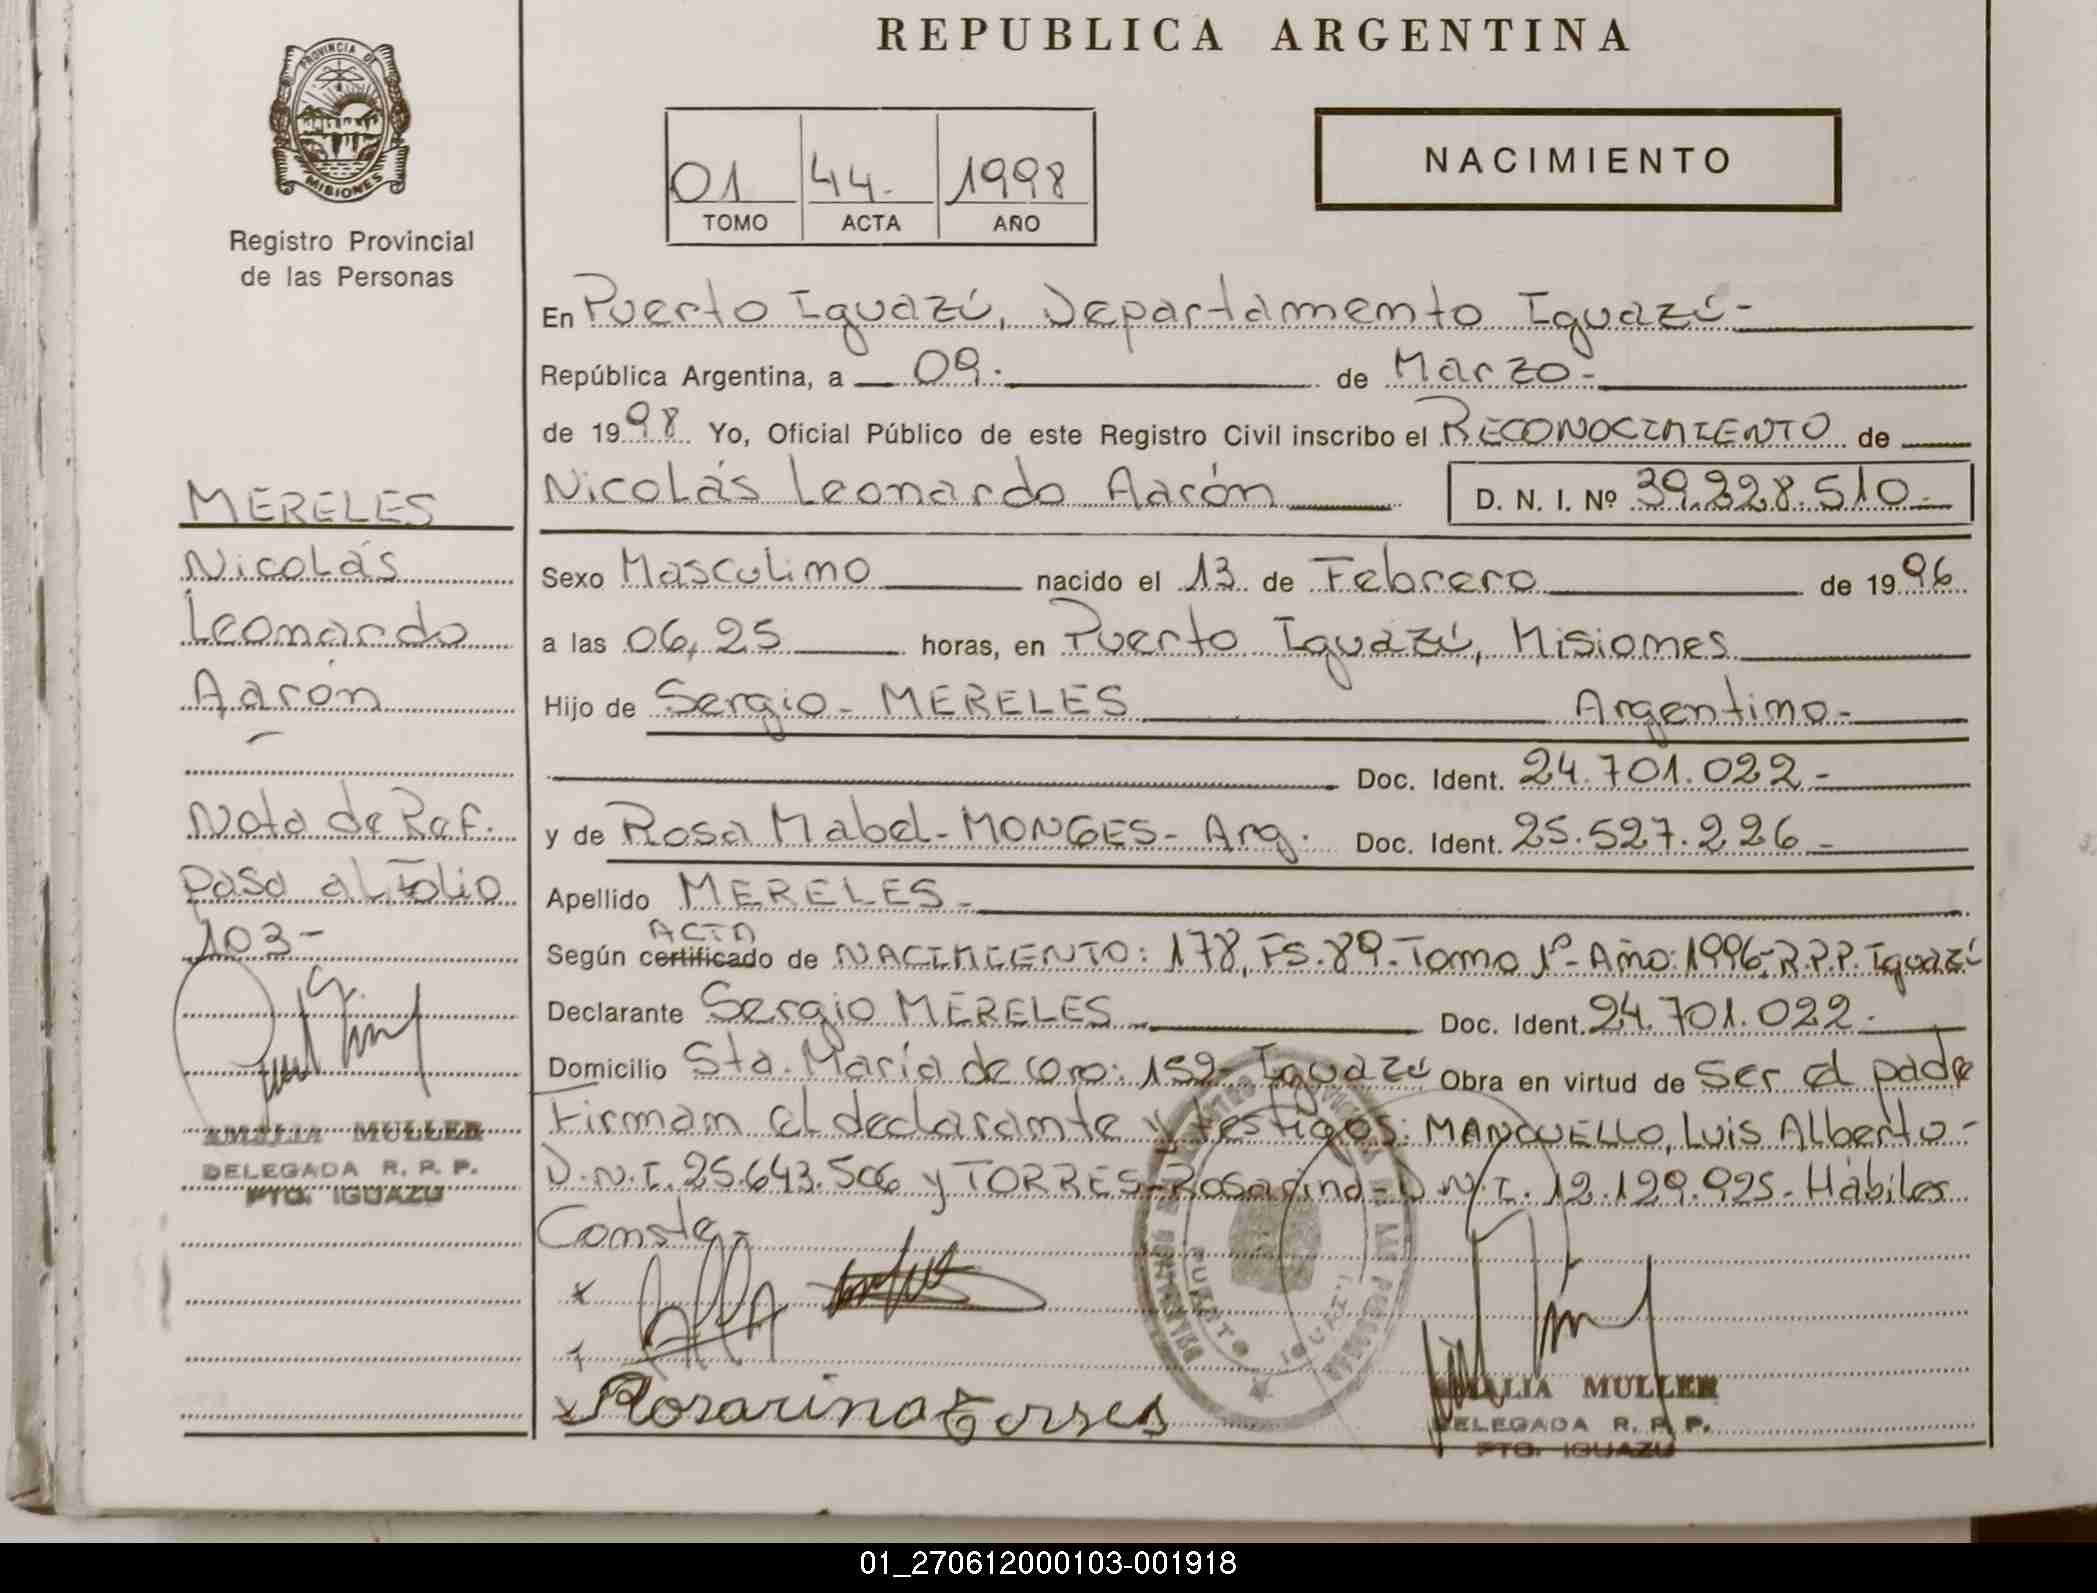 REPUBLICA ARGENTINA
PROVINCIA DE
MISIONES
Registro Provincial
de las Personas
01 44.- 1998
TOMO ACTA AÑO
NACIMIENTO
En Puerto Iguazú, Departamento Iguazú-
República Argentina, a 09.- de Marzo-
de 1998 Yo, Oficial Público de este Registro Civil inscribo el RECONOCIMIENTO de
Nicolás Leonardo Aarón D. N. I. Nº 39.228.510.-
Sexo Masculino nacido el 13 de Febrero de 1996
a las 06,25 horas, en Puerto Iguazú, Misiones
Hijo de Sergio- MERELES Argentino-
Doc. Ident. 24.701.022-
y de Rosa Mabel-MONGES- Arg. Doc. Ident. 25.527.226-
Apellido MERELES-
ACTA
Según certificado de NACIMIENTO: 178, Fs.89-Tomo 1º- Año:1996-R.P.P. Iguazú
Declarante Sergio MERELES Doc. Ident. 24.701.022-
Domicilio Sta. María de Oro: 159- Iguazú Obra en virtud de Ser el padre
Firman el declarante y testigos: MANCUELLO, Luis Alberto-
D.N.I. 25.643.506 y TORRES-Rosarina-D.N.I. 12.129.925- Hábiles
Conste-
Rosarina Torres
AMALIA MULLER
DELEGADA R. P. P.
PTO. IGUAZU
MERELES
Nicolás
Leonardo
Aarón
Nota de Ref.
pasa al Folio
103-
AMALIA MULLER
DELEGADA R. P. P.
PTO. IGUAZU
01_270612000103-001918